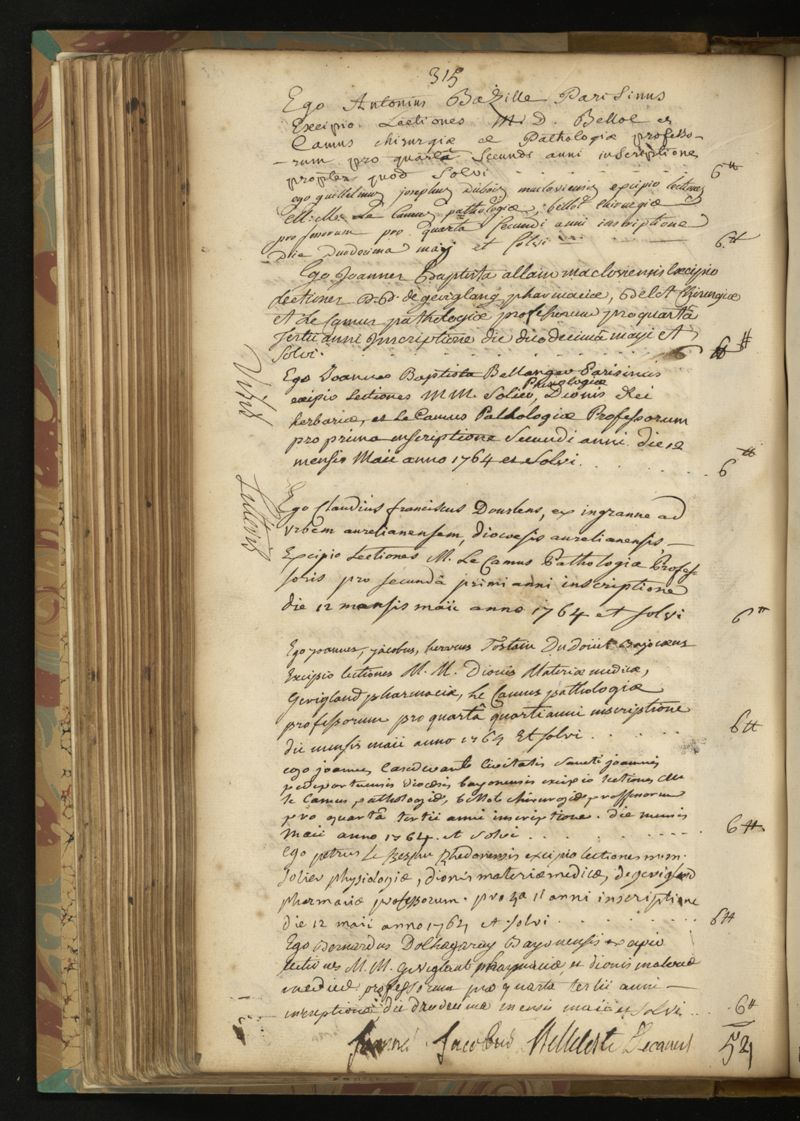 315
Ego Antonius Bazille Parisinus
Excipio Lectiones M D. Bellot et
Camus chirurgiæ et Pathologiæ professo-
-rum pro quartâ secundi anni inscriptione
propter quod Solvi . . . . . 6 ⁿ
ego guillelmus josephus Dubois macloviensis excipio lectiones
M.M. Le Camus pathologiæ, bellot chirurgiæ
professorum pro quarta secundi anni inscriptione
Die Duodecima maij et Solvi . . . 6 ⁿ
Ego Joannes Baptista allain macloviensis Excipio
Lectiones D.D. de gevigland pharmaciæ, Belot Chirurgiæ
et Le Camus pathologiæ professorum pro quartâ
tertii anni Inscriptione die duodecimâ maji et
Solvi. . . . . 6 ⁿ
Ego Joannes Baptista Bellanger Parisinus
excipio Lectiones M.M. Solier Phisiologiæ, Dionis Rei
herbariæ, et Le Camus Pathologiæ Professorum
pro prima inscriptione Secundi anni die 12
mensis Maii anno 1764 et Solvi . . . . 6 ⁿ
Ego Claudius franciscus Dourlens, ex ingranne ad
urbem aurelianensem, dioecesis aurelianensis —
Excipio Lectiones M. Le Camus Pathologiæ Profes-
soris pro secundâ primi anni inscriptione
die 12 mensis maii anno 1764 et solvi 6 ⁿ
Ego joannes, jacobus, herveus Tostain Dudouit Bajocæus
Excipio lectiones M. M. Dionis Materiæ medicæ,
Gevigland pharmaciæ, Le Camus pathologiæ
professorum pro quartâ quarti anni inscriptione
die mensis maii anno 1764 Et solvi . . . . . 6 ⁿ
ego joannes Casedevante Civitatis Sancti joannis
pedeportuensis diocesis bayonensis excipio lectiones de
le Camus pathologiæ, bellot chirurgiæ, professorum
pro quartâ tertii anni inscriptione. die mensis
Maii anno 1764. et solvi . . . . . 6 ⁿ
Ego petrus Le Rhedonensis excipio lectiones m.m.
Solier physiologiæ, dionis materiæ medicæ, de gevigland
pharmaciæ professorum. pro anni inscriptione
die 12 maii anno 1764 et solvi . . . . . 6 ⁿ
Ego Bernardus Dolhagaray Bayonensis excipio
lectiones M.M. Gevigland pharmaciæ et dionis materiæ
medicæ professorum pro quarta tertii anni —
inscriptione, die duodecima mensis maii et solvi . . 6 ⁿ
Joannes Jacobus Belleteste Decanus 54
Visis
Litteris